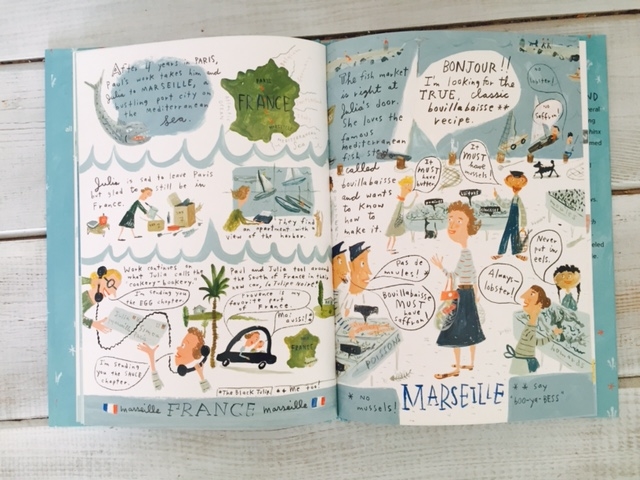 After 4 years in PARIS,
Paul's work takes him and
Julia to MARSEILLE, a
bustling port city on
the Mediterranean
Sea.
PARIS
FRANCE
Mediterranean
Sea
Julia is sad to leave Paris
but glad to still be in
France.
They find
an apartment with a
view of the harbor.
Work continues on
what Julia calls the
cookery-bookery.
I'm sending you
the EGG chapter.
I'm sending
you the SAUCE
chapter.
Paul and Julia tool around
the South of France in their
new car, La Tulipe Noire*.
Provence is my
favorite part
of France.
Moi
aussi**
FRANCE
*The Black Tulip! ** Me too!
marseille FRANCE marseille
The fish market
is right at
Julia's door.
She loves the
famous
Mediterranean
fish stew
called
bouillabaisse
and wants
to know
how to
make it.
BONJOUR!!
I'm looking for the
TRUE, classic
bouillabaisse **
recipe.
no
lobster!
no
Saffron
It
MUST
have
butter
It
MUST
have
mussels!
Pas de
moules! *
Bouillabaisse
MUST
have
saffron
Never
put in
eels.
Always
lobster!
POISSONS
MARSEILLE
* NO
mussels!
** say
"boo-ya-BESS"